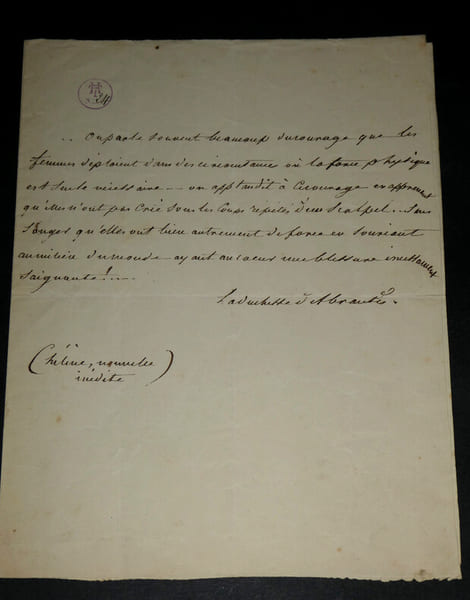 .. on parle souvent beaucoup du courage que les
femmes déploient dans des circonstances où la force physique
est seule nécessaire — on applaudit à ce courage en apprenant
qu'elles n'ont pas crié sous les coups répétés d'un scalpel... sans
songer qu'elles ont bien autrement de force en souriant
au milieu du monde ayant au coeur une blessure incessamment
saignante!...
La duchesse d'Abrantès.
(hélène, nouvelle
inédite)